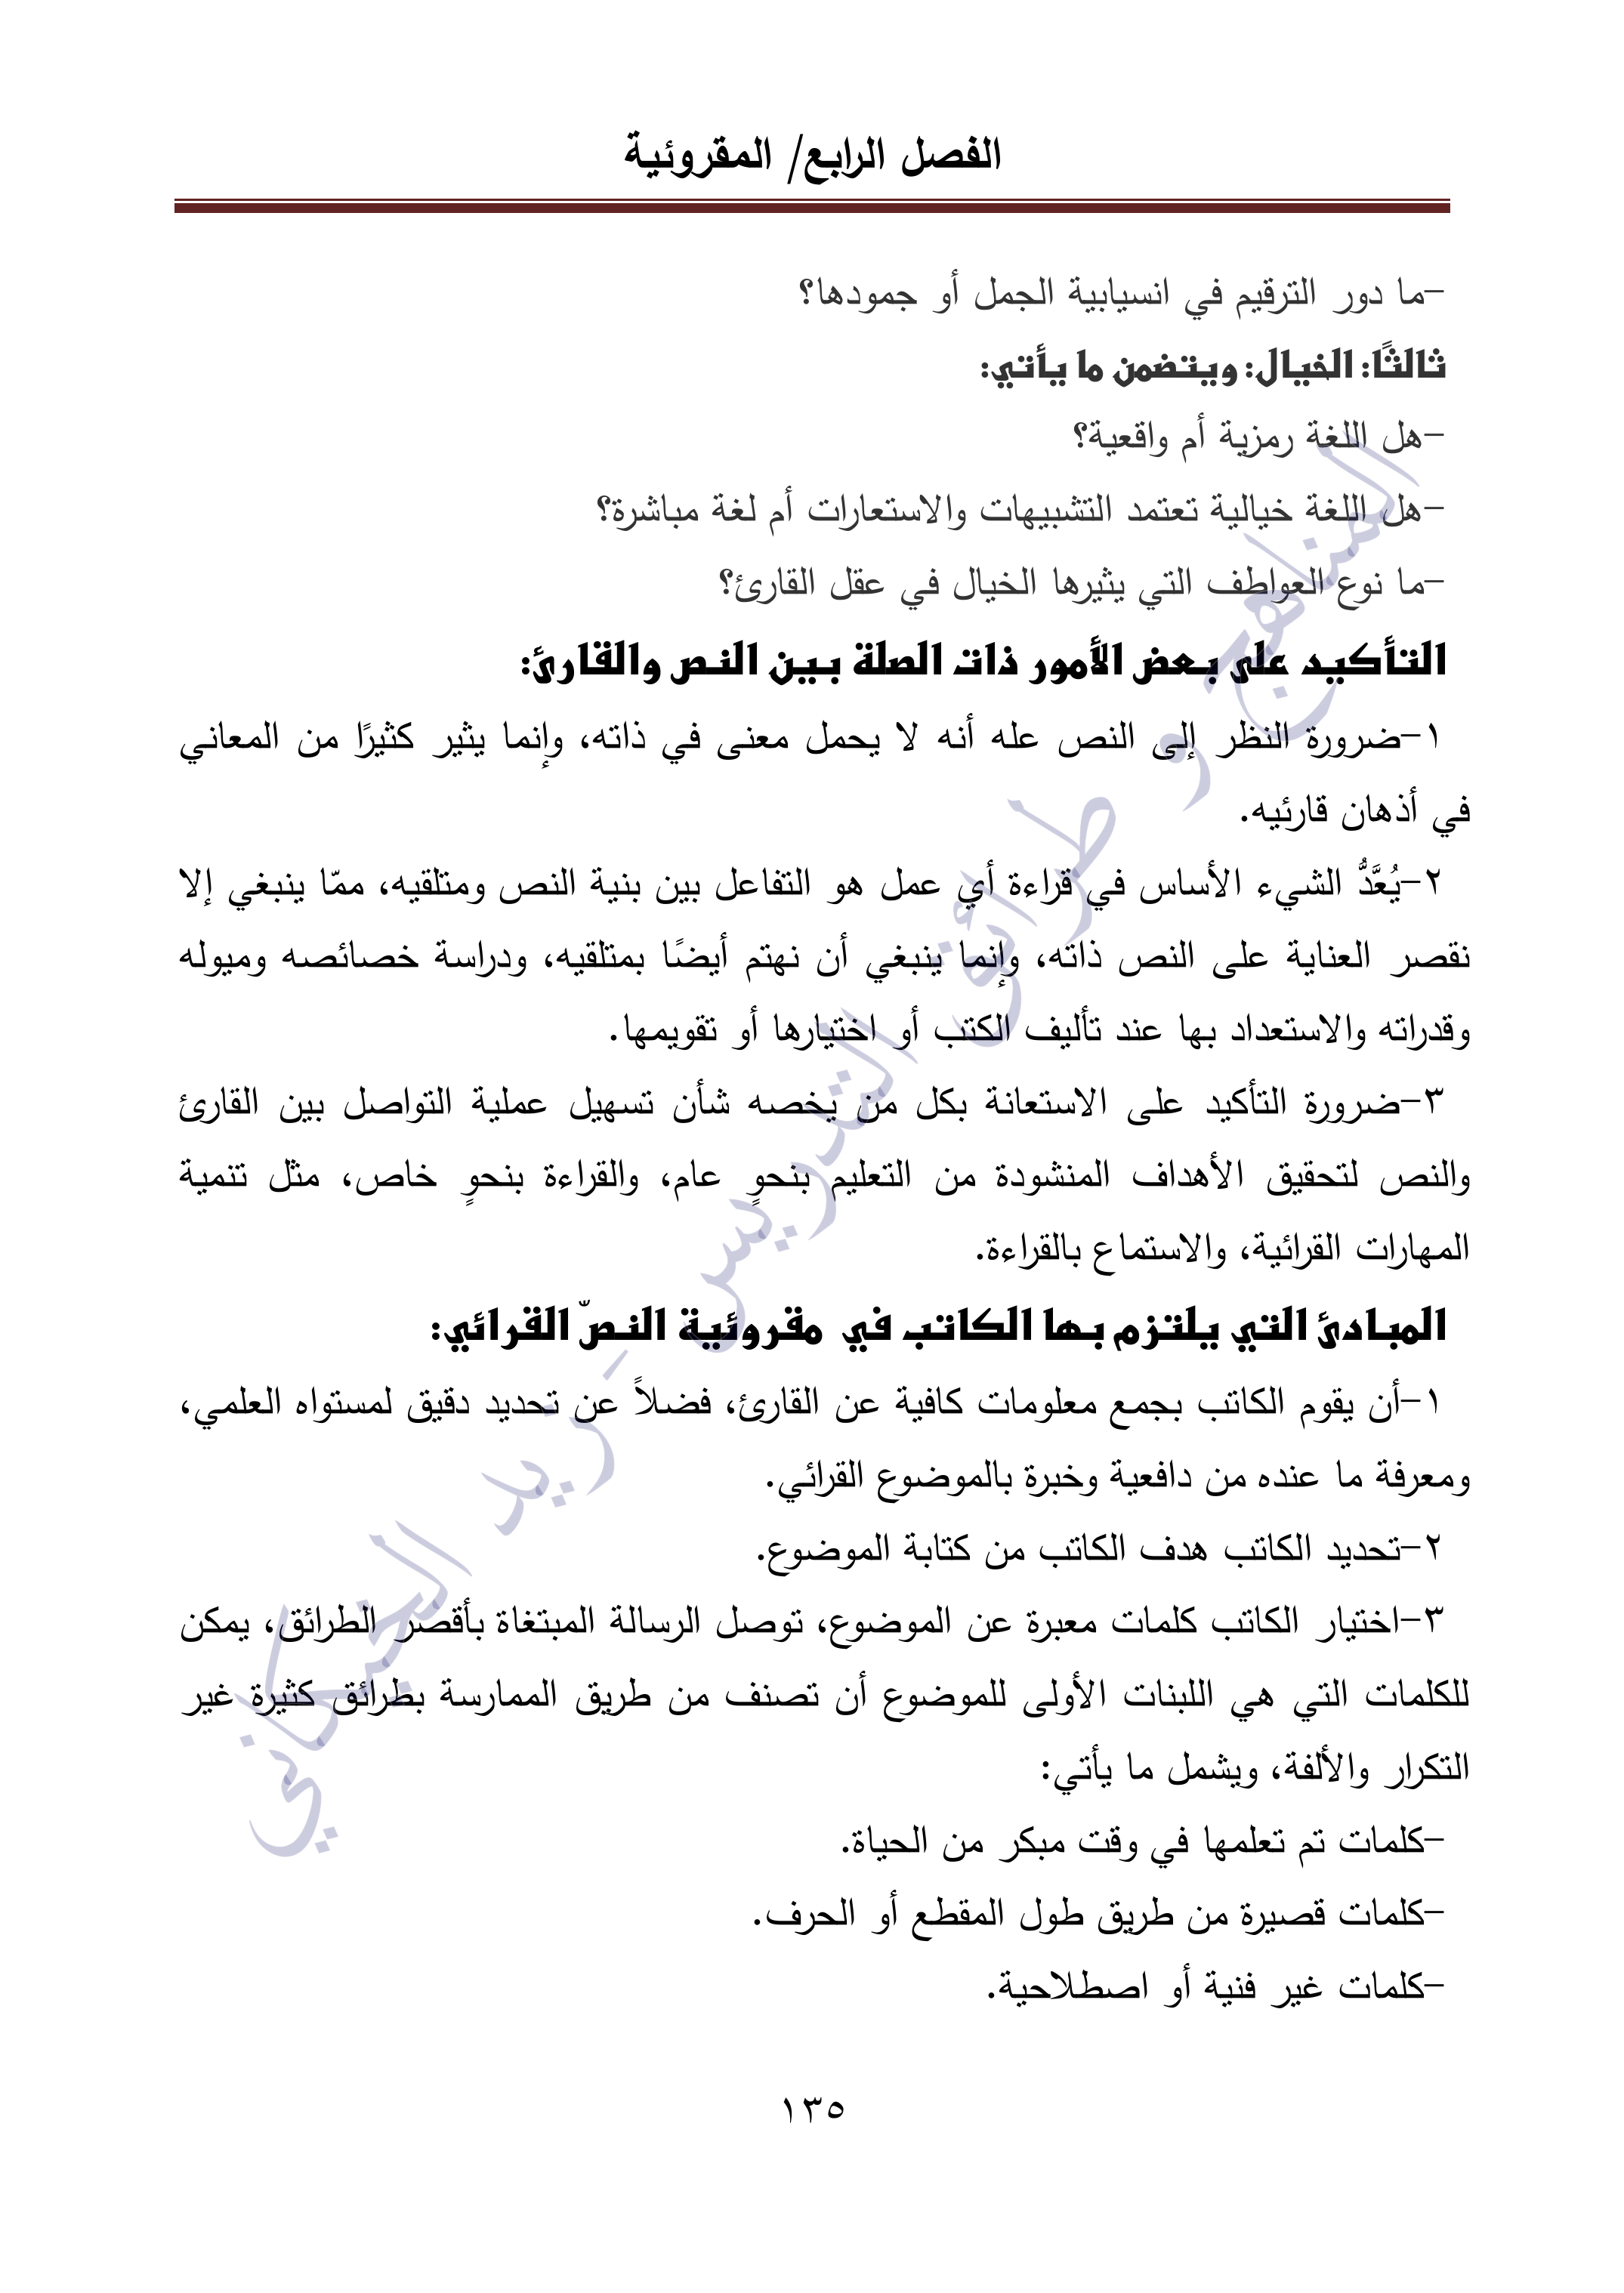 الفصل الرابع/ المقروئية
-ما دور الترقيم في انسيابية الجمل أو جمودها؟
ثالثًا: الخيال: ويتضمن ما يأتي:
-هل اللغة رمزية أم واقعية؟
-هل اللغة خيالية تعتمد التشبيهات والاستعارات أم لغة مباشرة؟
-ما نوع العواطف التي يثيرها الخيال في عقل القارئ؟
التأكيد على بعض الأمور ذات الصلة بين النص والقارئ:
١-ضرورة النظر إلى النص عله أنه لا يحمل معنى في ذاته، وإنما يثير كثيرًا من المعاني
في أذهان قارئيه.
٢-يُعَّدُّ الشيء الأساس في قراءة أي عمل هو التفاعل بين بنية النص ومتلقيه، ممّا ينبغي إلا
نقصر العناية على النص ذاته، وإنما ينبغي أن نهتم أيضًا بمتلقيه، ودراسة خصائصه وميوله
وقدراته والاستعداد بها عند تأليف الكتب أو اختيارها أو تقويمها.
٣-ضرورة التأكيد على الاستعانة بكل من يخصه شأن تسهيل عملية التواصل بين القارئ
والنص لتحقيق الأهداف المنشودة من التعليم بنحوٍ عام، والقراءة بنحوٍ خاص، مثل تنمية
المهارات القرائية، والاستماع بالقراءة.
المبادئ التي يلتزم بها الكاتب في مقروئية النصّ القرائي:
١-أن يقوم الكاتب بجمع معلومات كافية عن القارئ، فضلاً عن تحديد دقيق لمستواه العلمي،
ومعرفة ما عنده من دافعية وخبرة بالموضوع القرائي.
٢-تحديد الكاتب هدف الكاتب من كتابة الموضوع.
٣-اختيار الكاتب كلمات معبرة عن الموضوع، توصل الرسالة المبتغاة بأقصر الطرائق، يمكن
للكلمات التي هي اللبنات الأولى للموضوع أن تصنف من طريق الممارسة بطرائق كثيرة غير
التكرار والألفة، ويشمل ما يأتي:
-كلمات تم تعلمها في وقت مبكر من الحياة.
-كلمات قصيرة من طريق طول المقطع أو الحرف.
-كلمات غير فنية أو اصطلاحية.
١٣٥
المناهج و طرائق التدريس - زيد الخيكاني